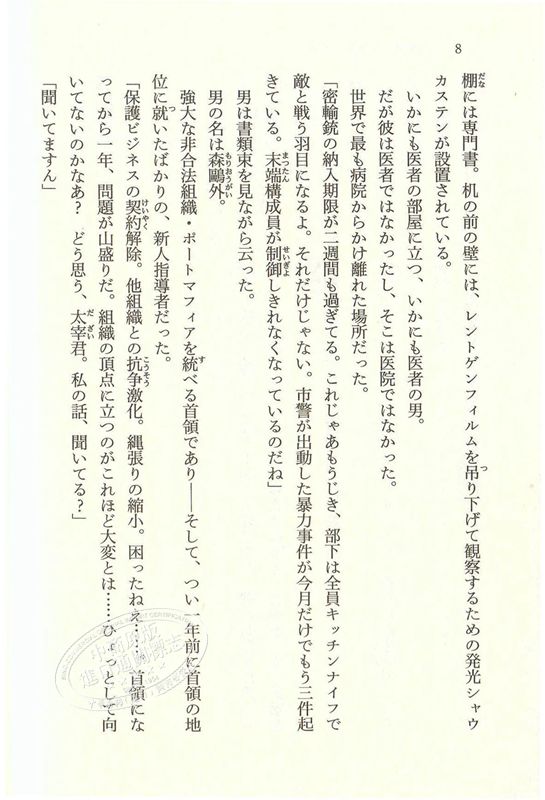 8
棚には専門書。机の前の壁には、レントゲンフィルムを吊り下げて観察するための発光シャウ
カステンが設置されている。
いかにも医者の部屋に立つ、いかにも医者の男。
だが彼は医者ではなかったし、そこは医院ではなかった。
世界で最も病院からかけ離れた場所だった。
「密輸銃の納入期限が二週間も過ぎてる。これじゃあもうじき、部下は全員キッチンナイフで
敵と戦う羽目になるよ。それだけじゃない。市警が出動した暴力事件が今月だけでもう三件起
きている。末端構成員が制御しきれなくなっているのだね」
男は書類束を見ながら云った。
男の名は森鷗外。
強大な非合法組織・ポートマフィアを統べる首領であり――そして、つい一年前に首領の地
位に就いたばかりの、新人指導者だった。
「保護ビジネスの契約解除。他組織との抗争激化。縄張りの縮小。困ったねえ……。首領にな
ってから一年、問題が山盛りだ。組織の頂点に立つのがこれほど大変とは……ひょっとして向
いてないのかなあ？　どう思う、太宰君。私の話、聞いてる？」
「聞いてますん」